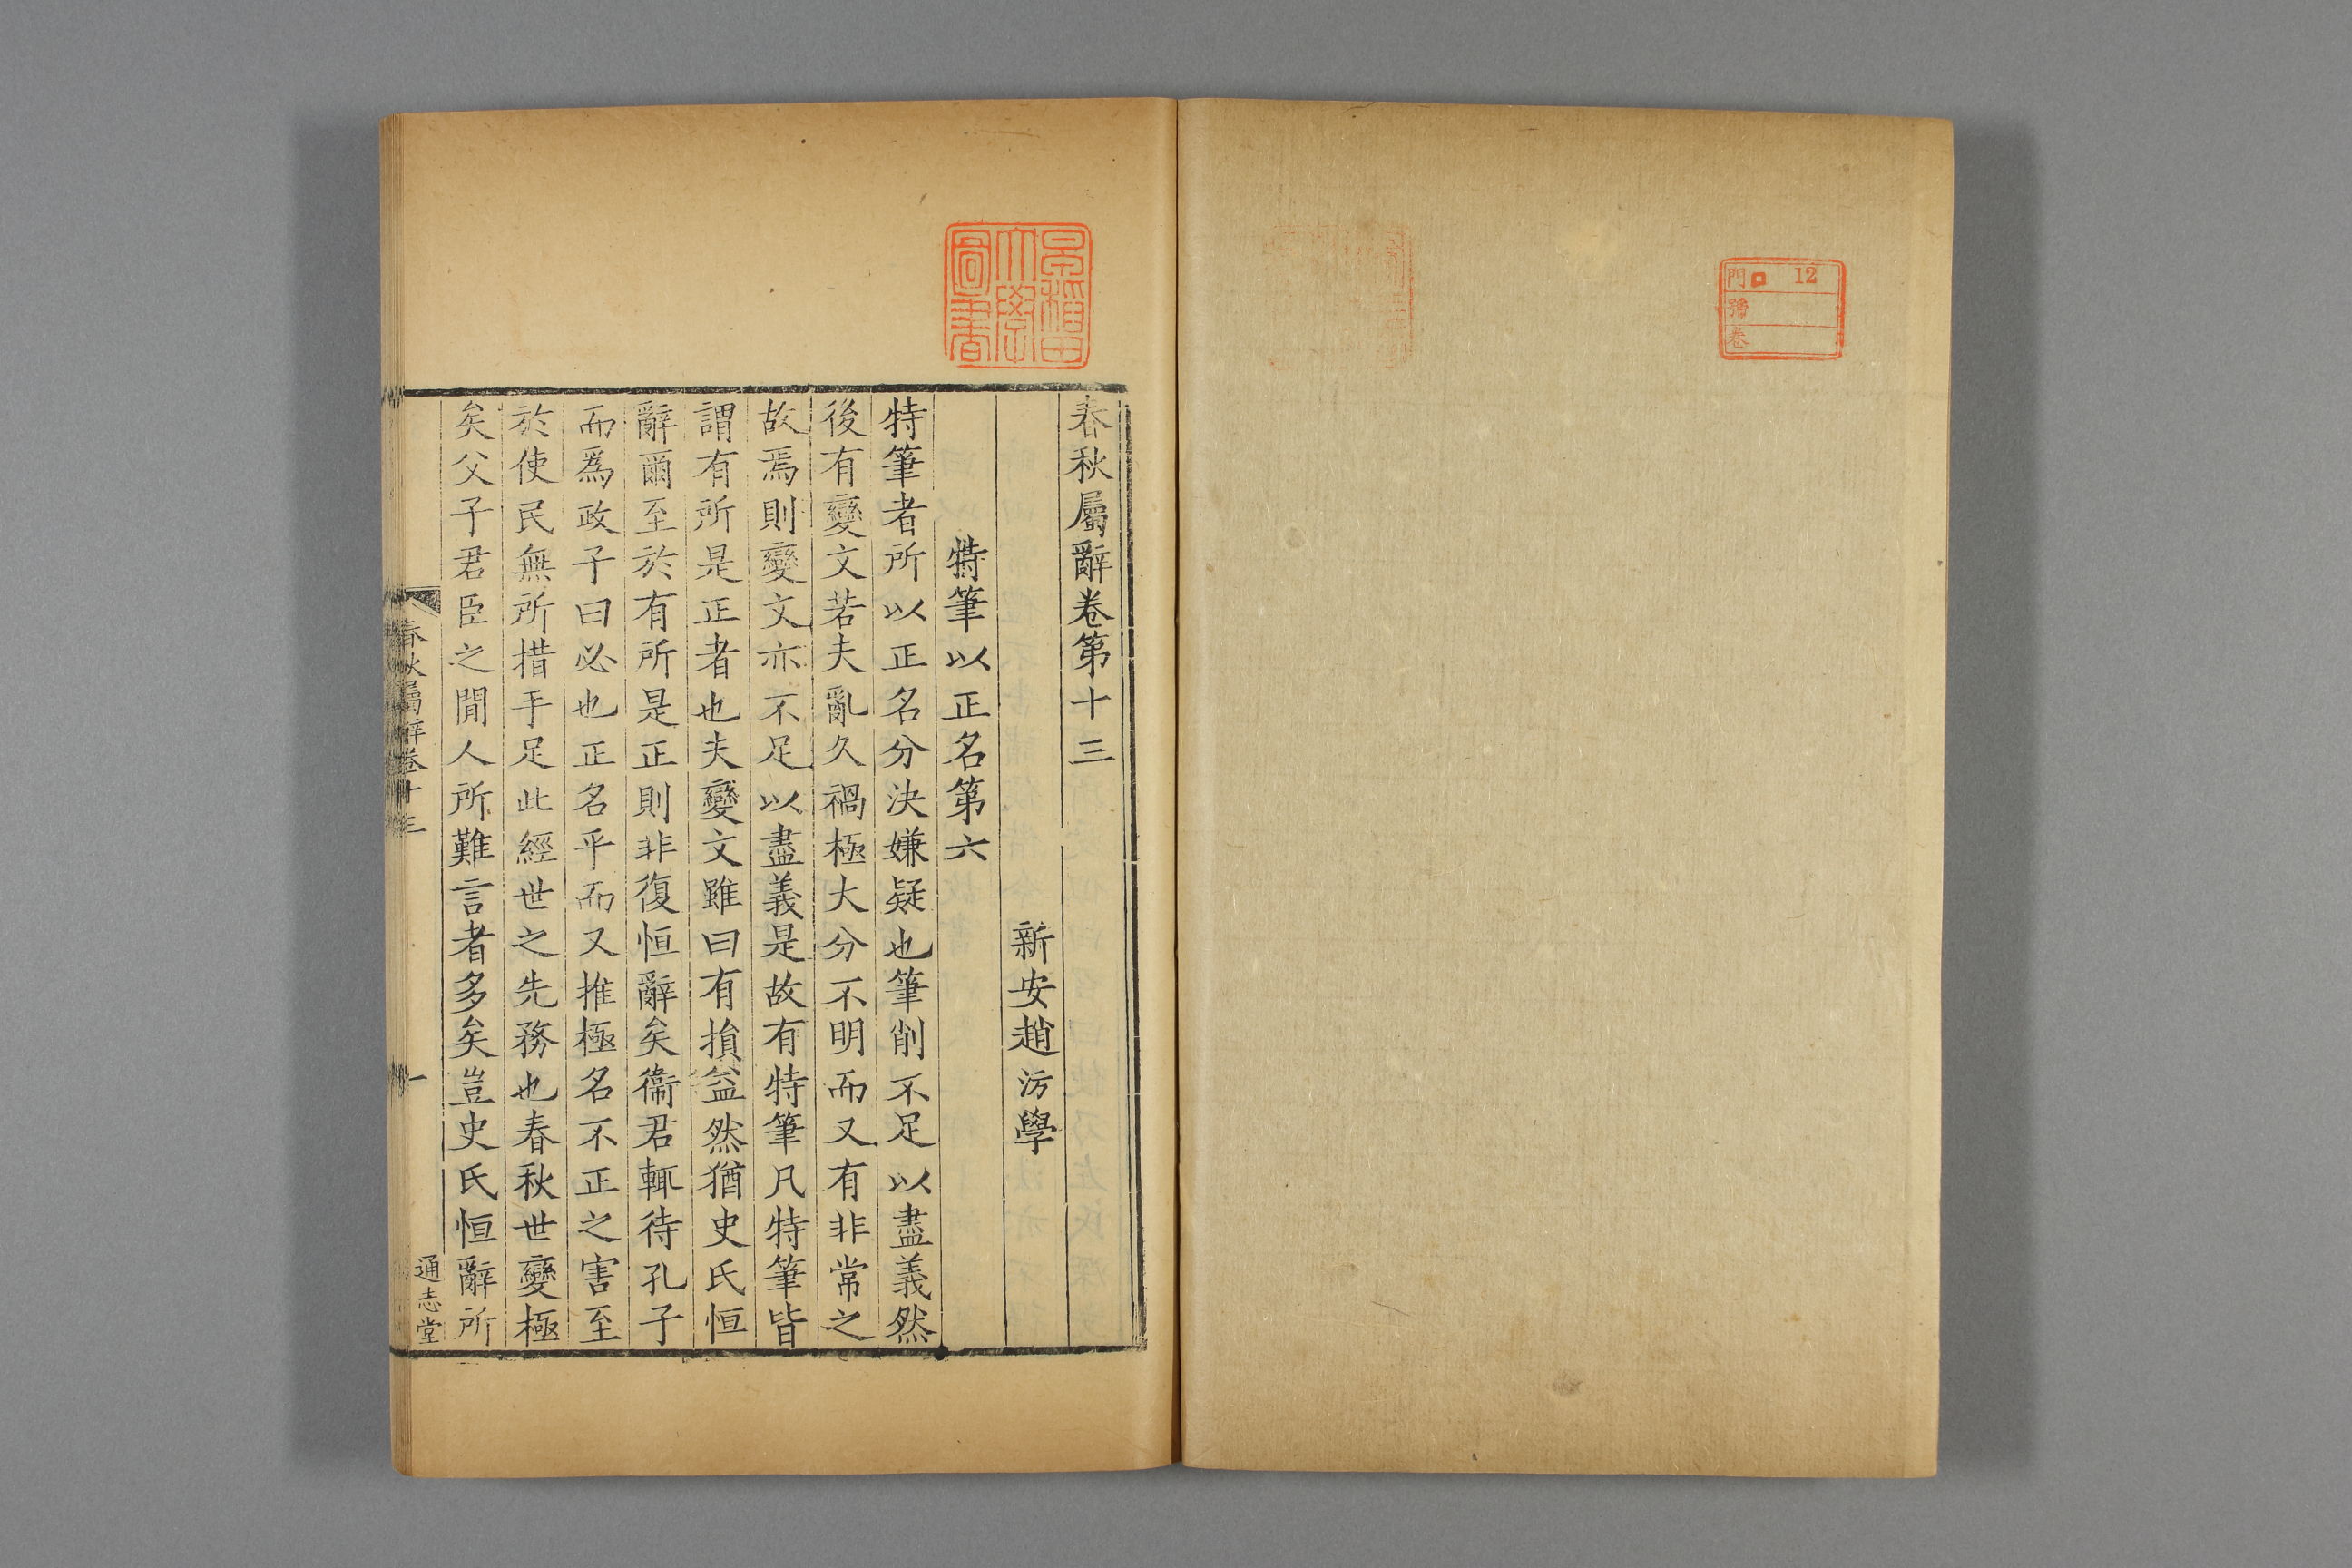 門 12
號
卷
早稲田
大學
圖書
春秋屬辭卷第十三
新安趙汸學
特筆以正名第六
特筆者所以正名分決嫌疑也筆削不足以盡義然
後有變文若夫亂久禍極大分不明而又有非常之
故焉則變文亦不足以盡義是故有特筆凡特筆皆
謂有所是正者也夫變文雖曰有損益然猶史氏恒
辭爾至於有所是正則非復恒辭矣衞君輒待孔子
而爲政子曰必也正名乎而又推極名不正之害至
於使民無所措手足此經世之先務也春秋世變極
矣父子君臣之閒人所難言者多矣豈史氏恒辭所
春秋屬辭卷十三
一
通志堂